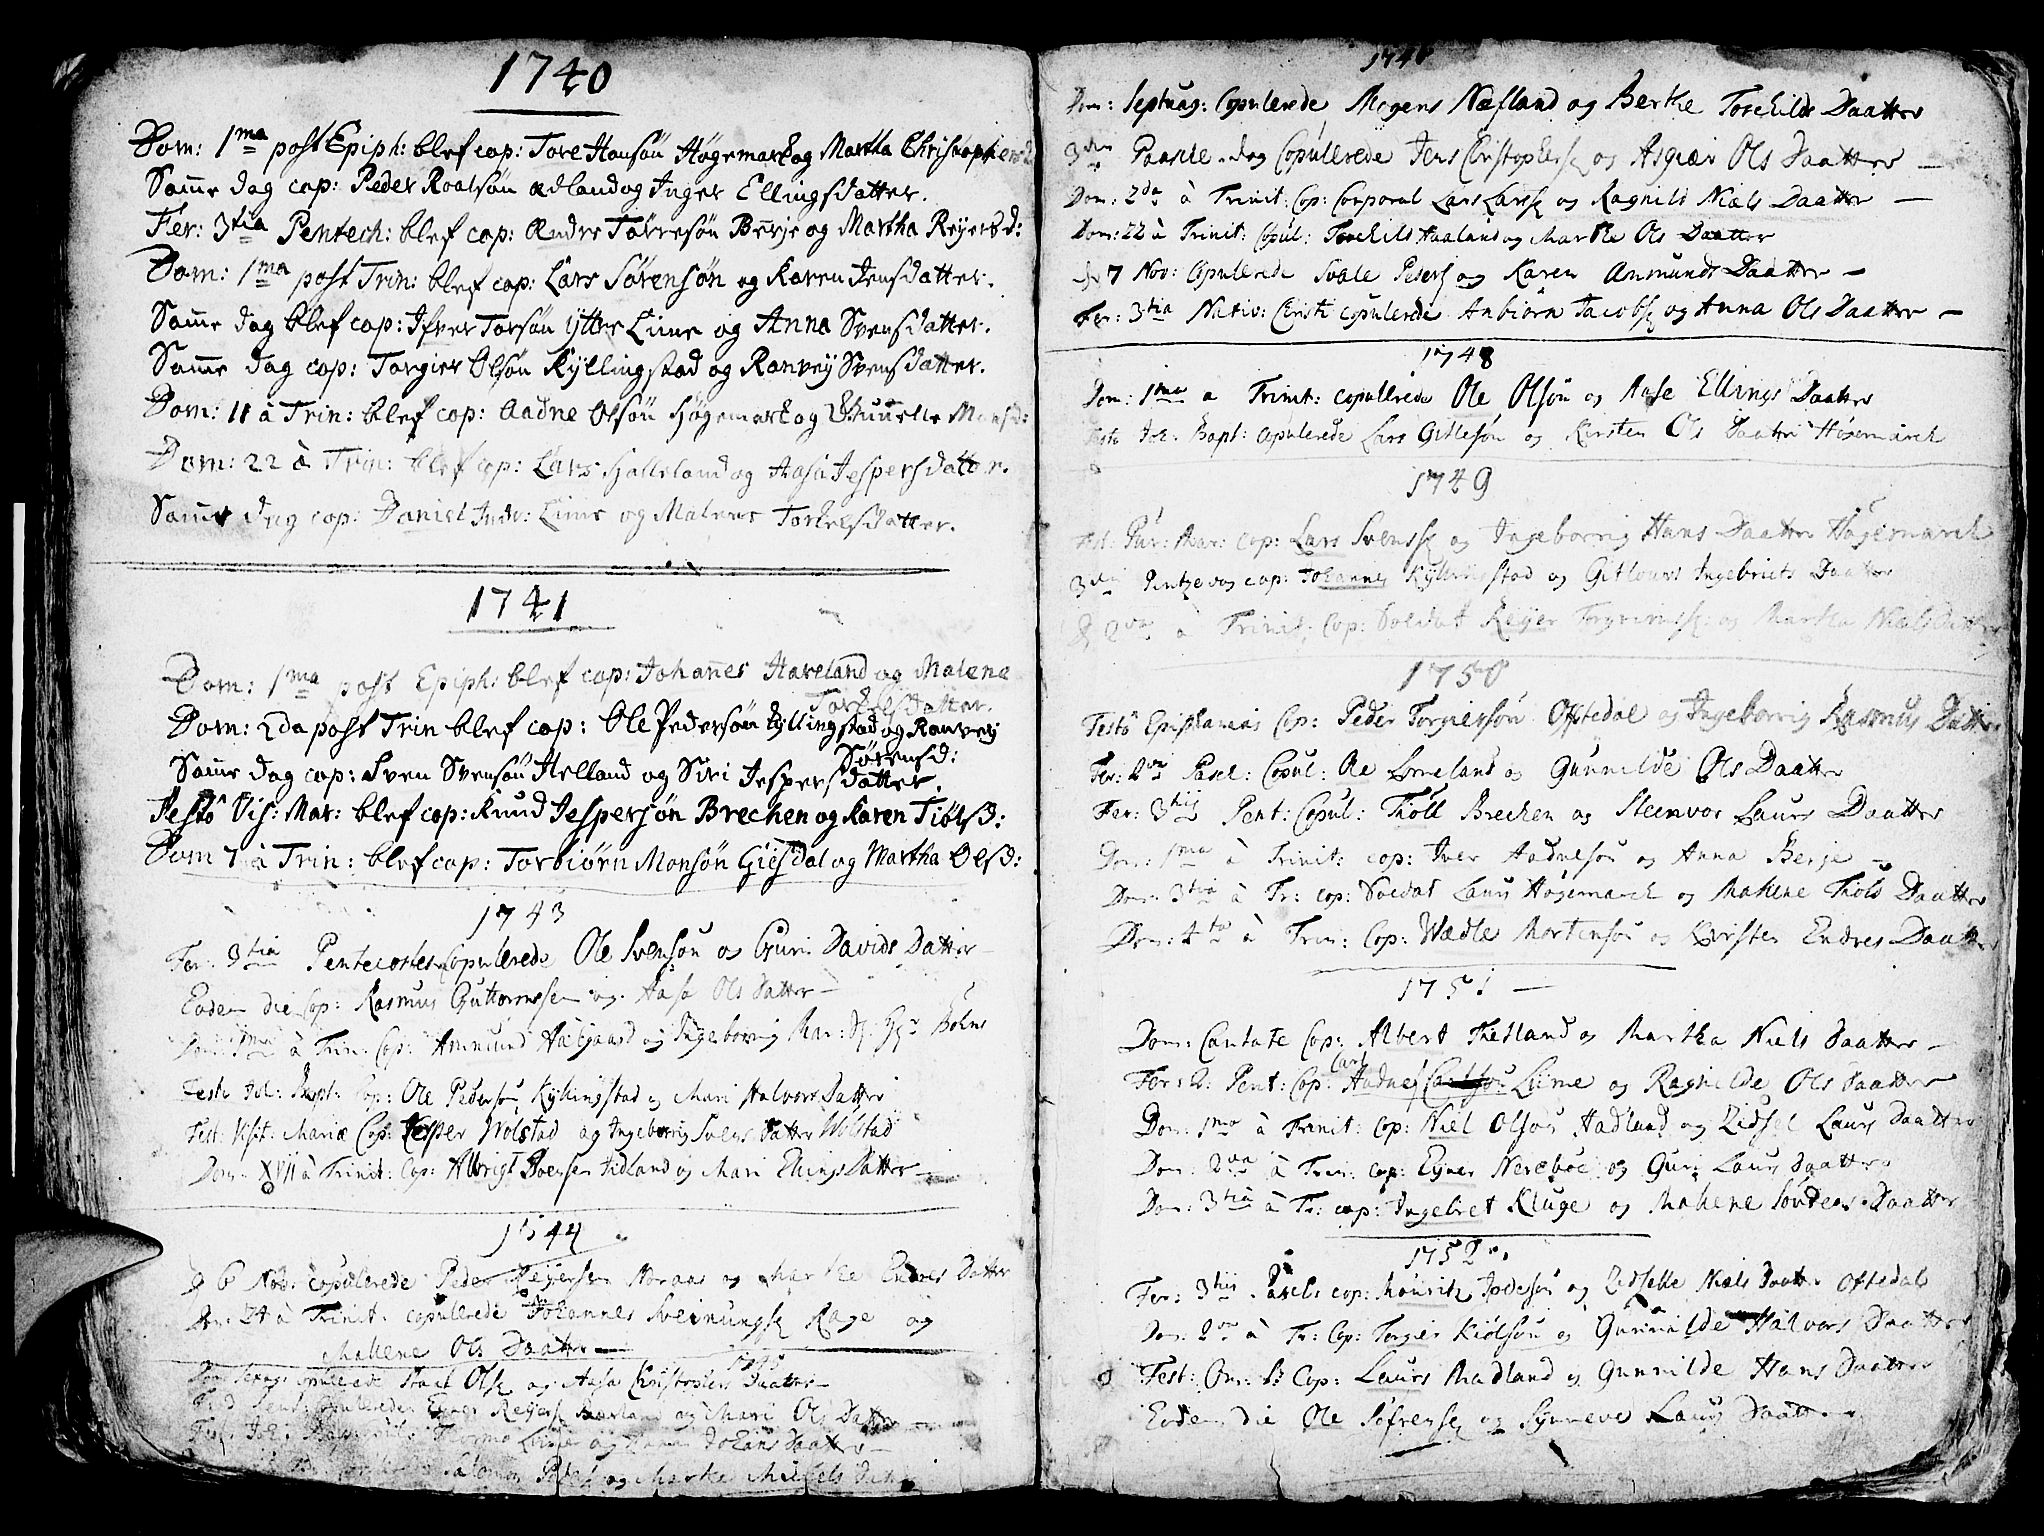 1740
Dom: 1ma post Epiph: blef cop: Tore Hansøn Høgemark og Martha Christophersd:
Samme dag cap: Peder Roalsøn Ædland og Inger Ellingsdatter.
Fer: 3tia Pentech: blef cop: Andre Torresøn Berje og Martha Reyersd:
Dom: 1ma post Trin: blef cop: Lars Sørensøn og Karen Jensdatter.
Samme dag blef cap: Ifver Torsøn Ytter Lime og Anna Svensdatter.
Samme dag cop: Torgier Olsøn Kyllingstad og Ranvey Svensdatter.
Dom: 11 à Trin: blef cop: Aadne Olsøn Høgemark og
Dom: 22 à Trin: blef cop: Lars Hjalleland og Aasa Jespersdatter.
Samme dag cop: Daniel Lime og Malene Torkelsdatter.
1741
Dom: 1ma post Epiph: blef cap: Johannes Haveland og Malene
Torkelsdatter.
Dom: 2da post Trin blef cop: Ole Pedersøn Kyllingstad og Ranvey
Sørensd:
Samme dag cap: Sven Svensøn Helland og Siri Jespersdatter.
Festo Vis: Mar: blef cop: Knud Jespersøn Brechen og Karen Tiølsd:
Dom 7 à Trin: blef cap: Torbiørn Monsøn Giesdal og Martha Olsd:
1743
Fer: 3tia Pentecostes Copulerede Ole Svensøn og Guri Davids Datter
Eodem die Cop: Rasmus Guttormsen og Aasa Ols Datter
Dom: 1ma à Trin: Cop: Ammund Haligaard og Ingeborrig
Festo Joh: Bapt: Cop: Ole Pedersøn Kyllingstad og Mari Halvors Datter
Fest: Visit: Mariæ Cop: Jesper Wolstad og Ingeborrig Svens Datter Wolstad
Dom: XVII à Trinit: Cop: Albrigt Svensen og Mari Ellings Datter
1744
6 Nov: copulerede Peder Reyersen Noraas og Marthe Endres Datter
Dom: 24 à Trinit: copulerede Johannes Sveinungs Rage og
Malene Ols Daatter
1745
Dom Sexag: Copulerede Olss og Aasa Christophers Daatter
og Mari Ols Datter
Lime og Johans Daatter
Salomon Peders og Marthe Michels Datter
174
Dom: Septuag: Copulerede Mogens Næsland og Berthe Torchilds Daatter
3die Paaske-dag Copulerede Jens Christophers og Asgiær Ols Daatter
Dom: 2da à Trinit: Cop: Corporal Lars Larss og Ragnild Niels Daatter
Dom: 22 à Trinit: Copul: Torchild Haaland og Marthe Ols Daatter
7 Nov: Copulerede Svale Peders og Karen Anmunds Daatter
Fer: 3tia Nativ: Christi copulerede Anbiørn Jacobs og Anna Ols Daatter
1748
Dom: 1ma a Trinit: copullerede Ole Olsøn og Aase Ellings Daatter
Festo Joh: Bapt: copulerede Lars Gitlesøn og Kirsten Ols Daatter Høgemarck
1749
Fest: Pur: Mar: cop: Lars Svenss og Ingeborrig Hans Daatter Høgemarck
3die Pintzedag cop: Johannes Kyllingstad og Gitlaug Ingebrits Daatter
2da à Trinit: Cop: Soldat Reyer Torgrimss: og Martha Niels Datter
1750
Festo Epiphanias Cop: Peder Torgiersøn Ofstedal og Ingeborrig Rasmus Datter
Fer: 2da Pasch: Copul: Ole Lomeland og Gunnilde Ols Daatter
Fer: 3tii Pent: Copul: Thøll Brechen og Steenvor Laurs Daatter
Dom: 1ma à Trinit: cop: Iver Aadnesøn og Anna Berje
Dom: 3tia à Tr: cop: Soldat Laurs Høgemarck og Malene Thøls Daatter
Dom: 4ta à Trin: Cop: Wædle Mortensøn og Kirsten Endres Daatter
1751
Dom: Cantate Cop: Albert Thetland og Martha Niels Daatter
Fer: 2: Pent: Cop: Aadne Carl Lime og Ragnilde Ols Daatter
Dom: 1mo à Trinit: Cop: Niel Olsøn Aadland og Zidsel Laurs Daatter
Dom: 2da à Trin: cop: Eyner Nereboe og Guri Laurs Daatter
Dom: 3tia à Tr: cop: Ingebret Kluge og Malene Sørens Daatter
1752
Fer: 3tii Pasch: cop: Mouritz og Zidselle Niels Daatter Ofstedal
Dom: 2da à Tr: Cop: Torgier Kiølsøn og Gunnilde Halvors Daatter
Fest: Om: S: Cop: Laurs Madland og Gunnilde Hans Daatter
Eodem die Ole Søfrens og Synneve Laurs Daatter